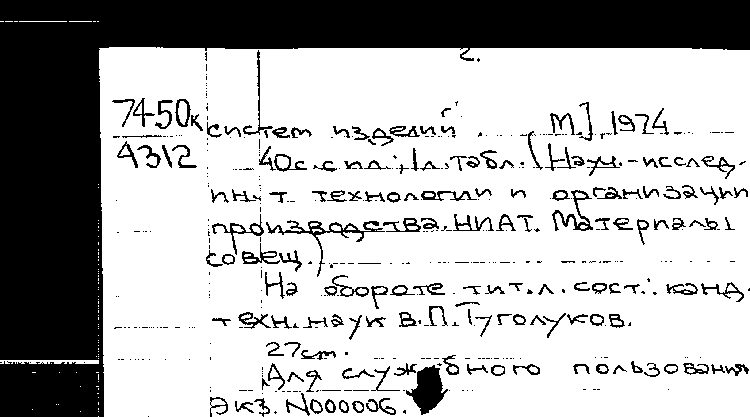 2.
74-50к
4312
систем изделий. [М.], 1974
40с. с ил.; 1л. табл. (Науч.-исслед.
ин-т технологии и организации
производства. НИАТ. Материалы
совещ.).
На обороте тит. л. сост.: канд.
техн. наук В.П. Туголуков.
27см.
Для служебного пользования
Экз. N000006.